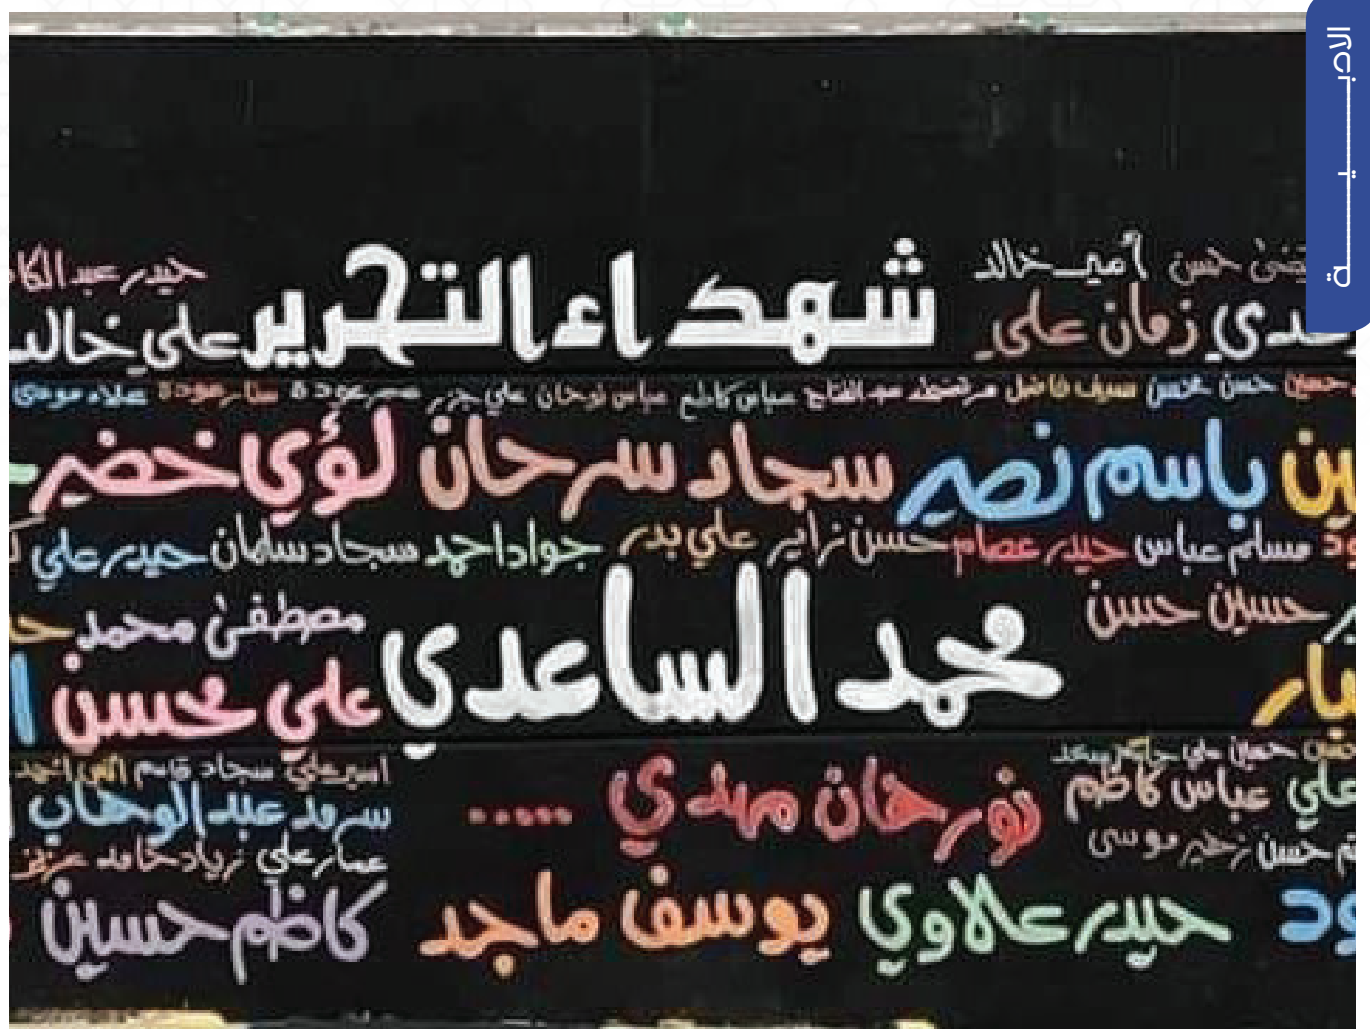 الادبـــيـــة
حسن أمير خالد
شهداء التحرير
حيدر عبد الكا
زمان علي
علي خالد
حسين حسن محسن سيف فاضل مرتضى عبد الفتاح عباس كاطع عباس نوحان علي جزير عمر عودة ستار عودة علاء موسى
ين باسم نصير سجاد سرحان لؤي خضير
ود مسلم عباس حيدر عصام حسن زاير علي بدر جواد احمد سجاد سلمان حيدر علي
حسين حسن
محمد الساعدي
مصطفى محمد
علي محسن
حسين علي جاسم سعد
علي عباس كاظم
نورخان مهدي .....
امير علي سجاد قاسم
سرمد عبدالوهاب
حسن زهير موسى
عمار علي زياد حامد
ود حيدر علاوي يوسف ماجد كاظم حسين